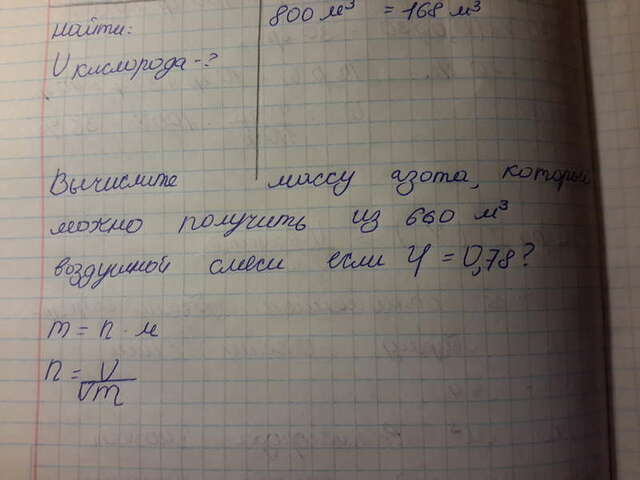 800 м³ = 168 м³
Найти:
V кислорода - ?
Вычислите массу азота, которы
можно получить из 680 м³
воздушной смеси если φ = 0,78?
m = n · м
n = V/Vm